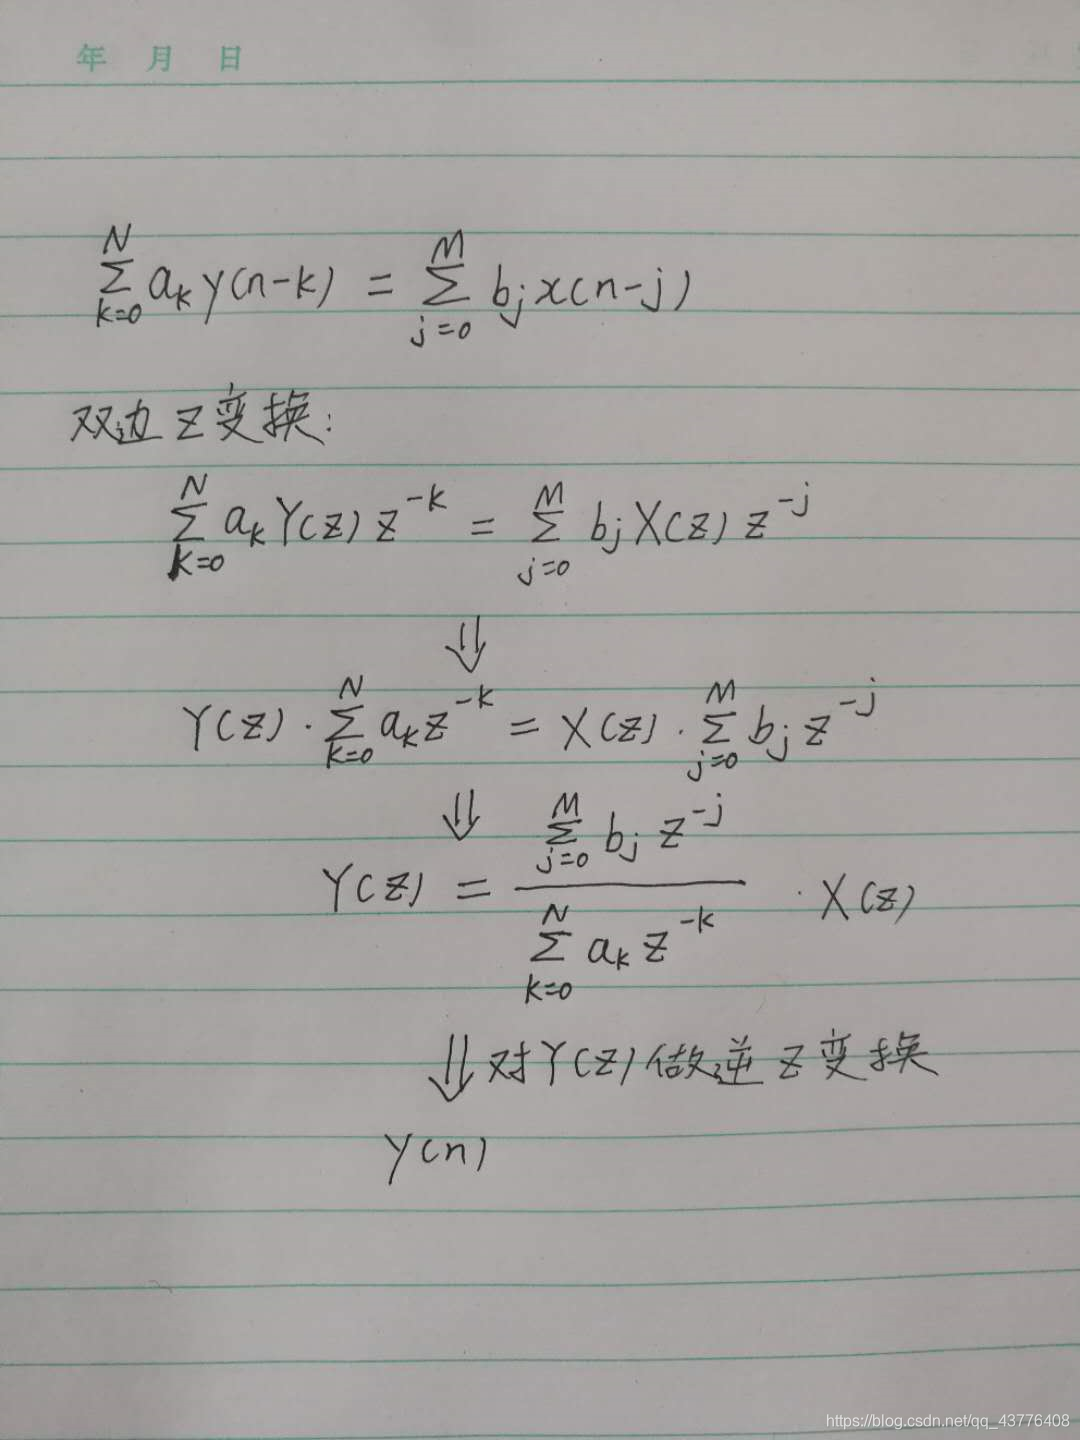 年 月 日
$\sum_{k=0}^{N} a_k y(n-k) = \sum_{j=0}^{M} b_j x(n-j)$
双边Z变换:
$\sum_{k=0}^{N} a_k Y(z) z^{-k} = \sum_{j=0}^{M} b_j X(z) z^{-j}$
⇓
$Y(z) \cdot \sum_{k=0}^{N} a_k z^{-k} = X(z) \cdot \sum_{j=0}^{M} b_j z^{-j}$
⇓
$Y(z) = \frac{\sum_{j=0}^{M} b_j z^{-j}}{\sum_{k=0}^{N} a_k z^{-k}} \cdot X(z)$
⇓ 对Y(z)做逆Z变换
y(n)
https://blog.csdn.net/qq_43776408